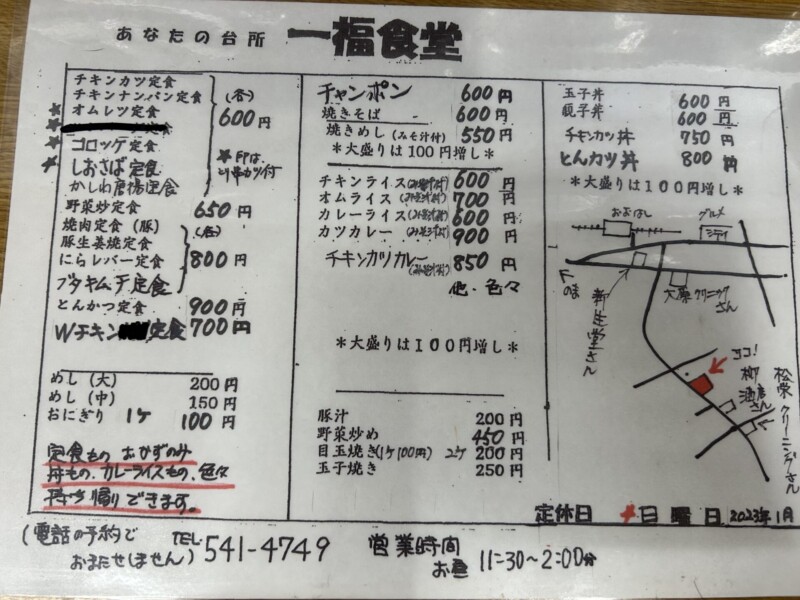 あなたの台所 一福食堂
チキンカツ定食
チキンナンバン定食 (各)
オムレツ定食 600円
コロッケ定食
しおさば定食 ★印は、串カツ付
かしわ唐揚定食
野菜炒定食 650円
焼肉定食(豚) (各)
豚生姜焼定食
にらレバー定食 800円
ブタキムチ定食
とんかつ定食 900円
Wチキン 定食 700円
めし(大) 200円
めし(中) 150円
おにぎり 1ケ 100円
定食もの おかずのみ
丼もの、カレーライスもの、色々
持ち帰りできます。
チャンポン 600円
焼きそば 600円
焼きめし(みそ汁付) 550円
*大盛りは100円増し*
チキンライス(みそ汁付) 600円
オムライス(みそ汁付) 700円
カレーライス(みそ汁付) 600円
カツカレー(みそ汁付) 900円
チキンカツカレー(みそ汁付) 850円
他、色々
*大盛りは100円増し*
豚汁 200円
野菜炒め 450円
目玉焼き(1ケ100円) 2ケ 200円
玉子焼き 250円
玉子丼 600円
親子丼 600円
チキンカツ丼 750円
とんカツ丼 800円
*大盛りは100円増し*
おおはし
グルメ
シティ
のま
新生堂さん
大薬クリーニング
さん
ココ!
柳
酒店さん
松栄クリーニングさん
定休日 日曜日 2023年1月
(電話の予約で
おまたせしません) TEL 541-4749
営業時間
お昼 11:30~2:00分